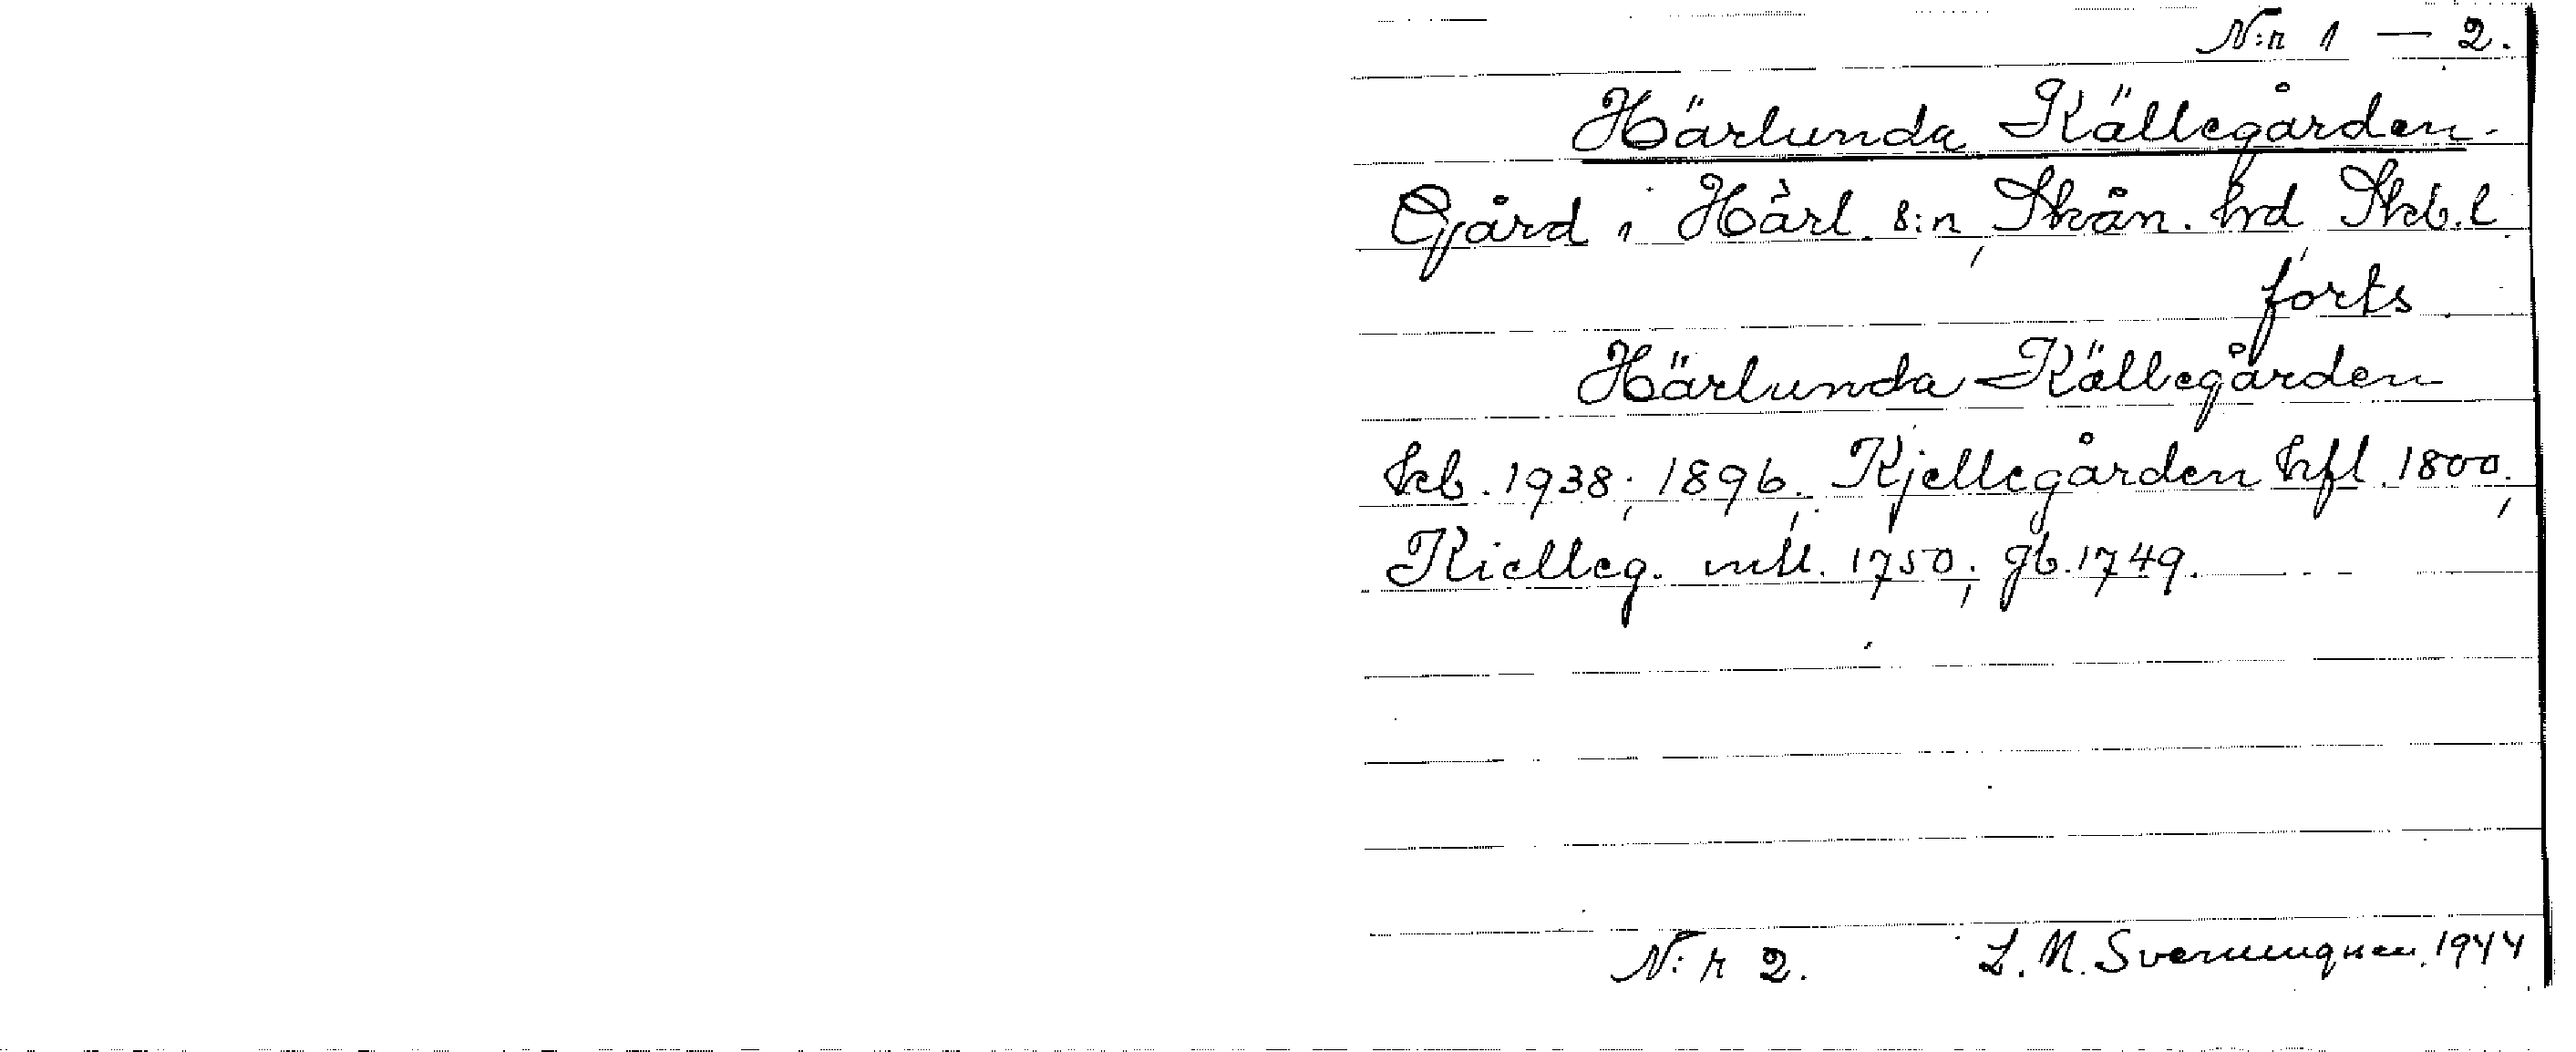 N:r 1 — 2.
Härlunda Källegården
Gård i Härl. s:n, Skån. hrd Skb. l.
forts.
Härlunda Källegården
kb. 1938; 1896; Kjellegården hfl. 1800;
Kielleg. mtl. 1750; gb. 1749.
N:r 2. L. M. Svenungsson. 1944